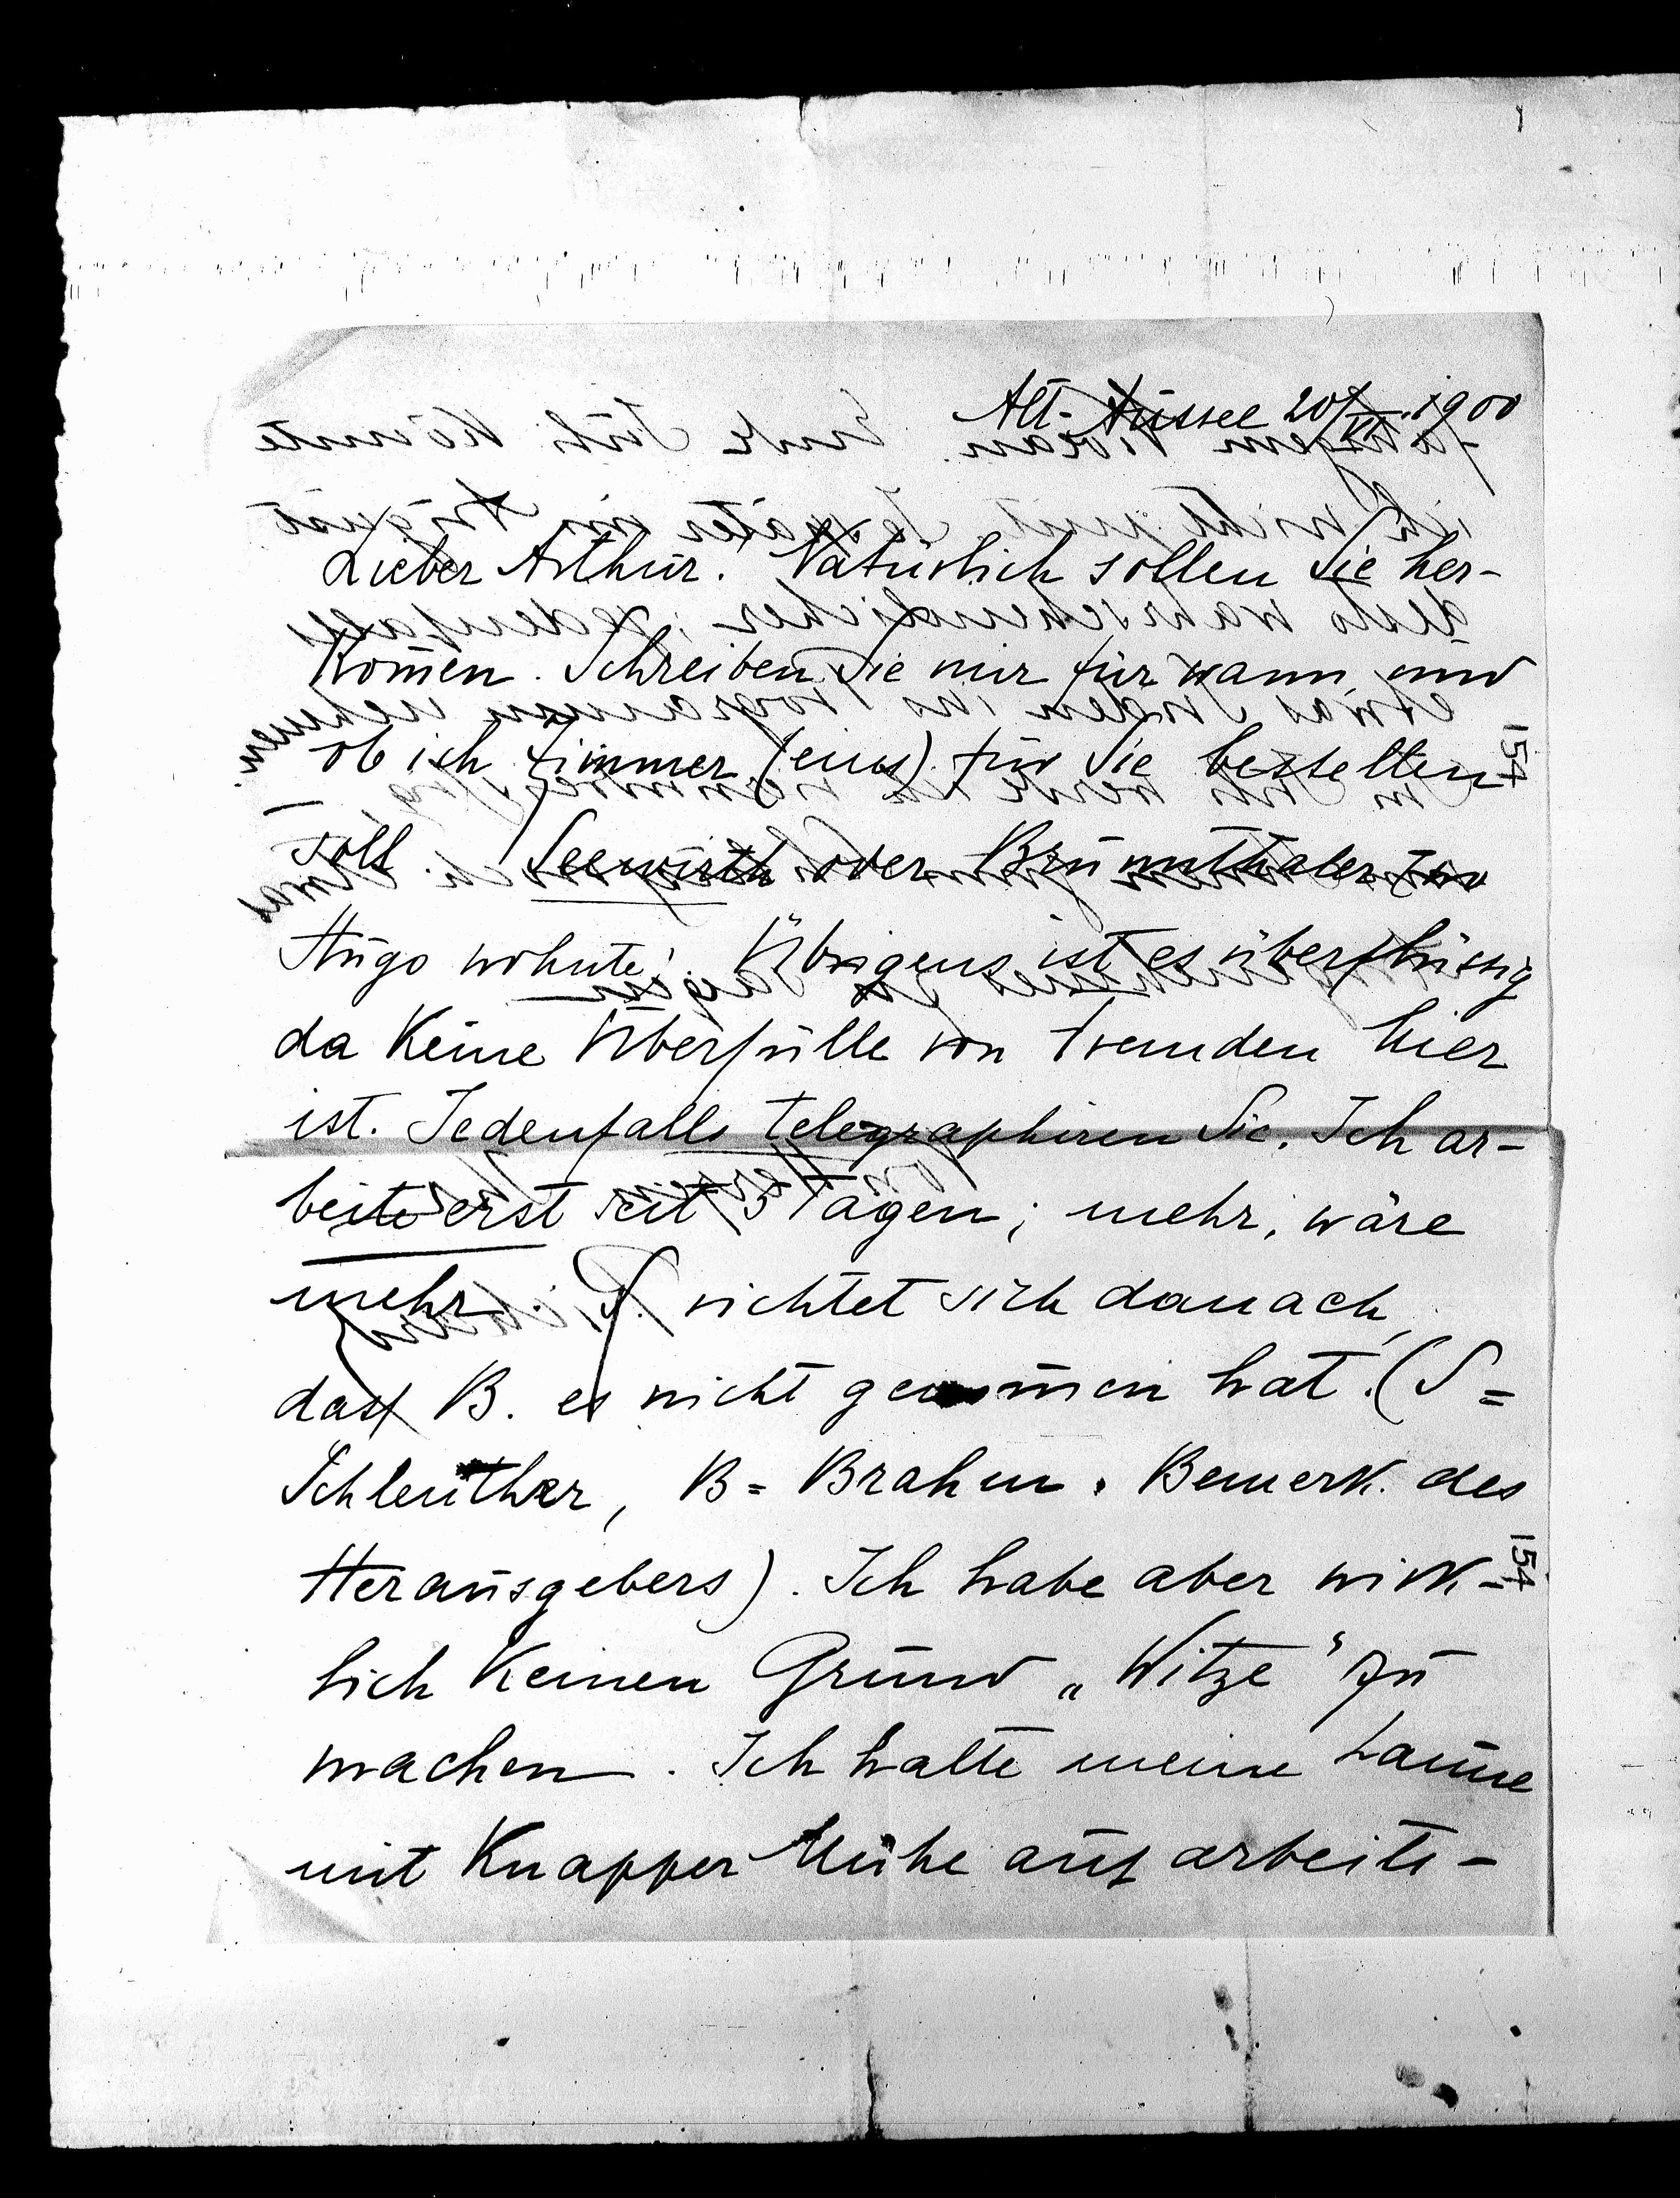 Alt-Aussee 20/VI. 1900
Lieber Arthur. Natürlich sollen Sie her-
kom̄en. Schreiben Sie mir für wann, und
ob ich Zimmer (eins) für Sie bestellen
soll. Seewirth oder Brunnthaler wo
Hugo wohnte. Übrigens ist es überflüssig
da keine Überfülle von Fremden hier
ist. Jedenfalls telegraphiren Sie. Ich ar-
beite erst seit 3 Tagen; mehr, wäre
mehr. S. richtet sich danach,
dass B. es nicht genom̄en hat. (S =
Schlenther, B = Brahm. Bemerk. des
Herausgebers). Ich habe aber wirk-
lich keinen Grund „Witze“ zu
machen. Ich halte meine Laune
mit knapper Mühe auf arbeits-
154
154